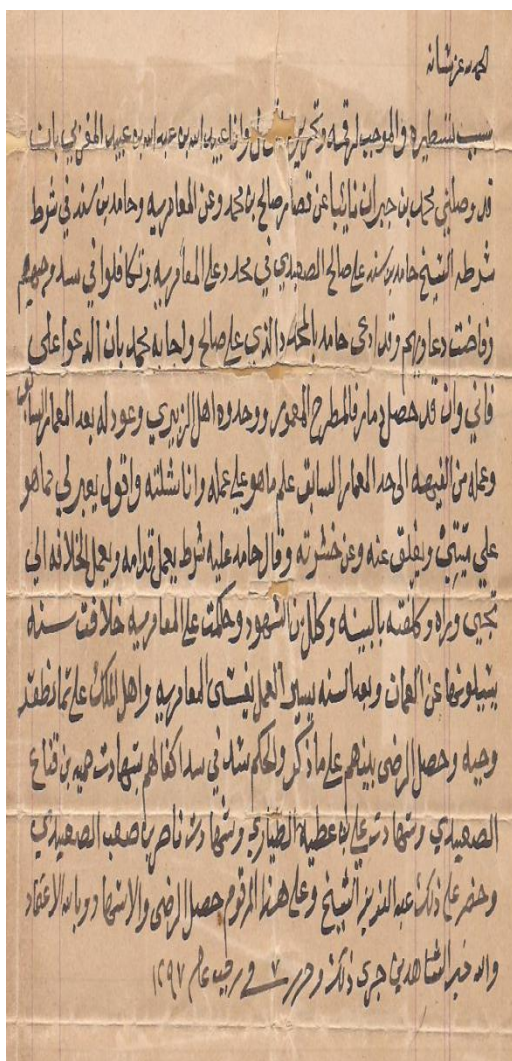 الحمد لله عز شانه
سبب تسطيره والموجب لرقمه وتحريره وانا عبيد الله بن عبد الله بن عبيد المغربي بان
قد وصلني محمد بن جبران نايبا عن قصار صالح بن محمد وعن المعامريه وحامد بن سند في شرط
شرطه الشيخ حامد بن سند على صالح الصعيدي في محدد على المعامريه وتكافلوا في سد وجيههم
وفاضت دعاويهم وقد ادعى حامد بالمحدد الذي على صالح ولجابه محمد بان الدعوا على
فاني وان قد حصل دمار فالمطرح المعمور ووحدوه اهل الزبيري وعود له بعد المعمار السابق
وعمله من الفيهه الى حد المعمار السابق على ما هو على عمله وانا شلته واقول يعبر لي مما هو
على ويفلق عنه وعن خشرته وقال حامد عليه شرط يعمل قدامه ويعمل الخلافه الي
تجيي وراه وكلفته بالبينه وكلل بالشهود وحكمت على المعامريه خلافت سنه
يشيلونها عن العمان وبعد السنه يسير العمل يغشى المعامريه واهل الملك على
وجيه وحصل الرضى بينهم على ما ذكر والحكم سد في سد اكفالهم بشهادت حميد بن قناع
الصعيدي وشهادت علي بن عطيه الطياري وشهادت ناصر بن صعب الصعيدي
وحضر على ذلك عبد العزيز الشيخ وعلى هذا المرقوم حصل الرضى والاشهاد وبالله الاعتماد
والله خير الشاهدين جرى ذلك وحرر ٧ في رجب عام ١٢٩٧